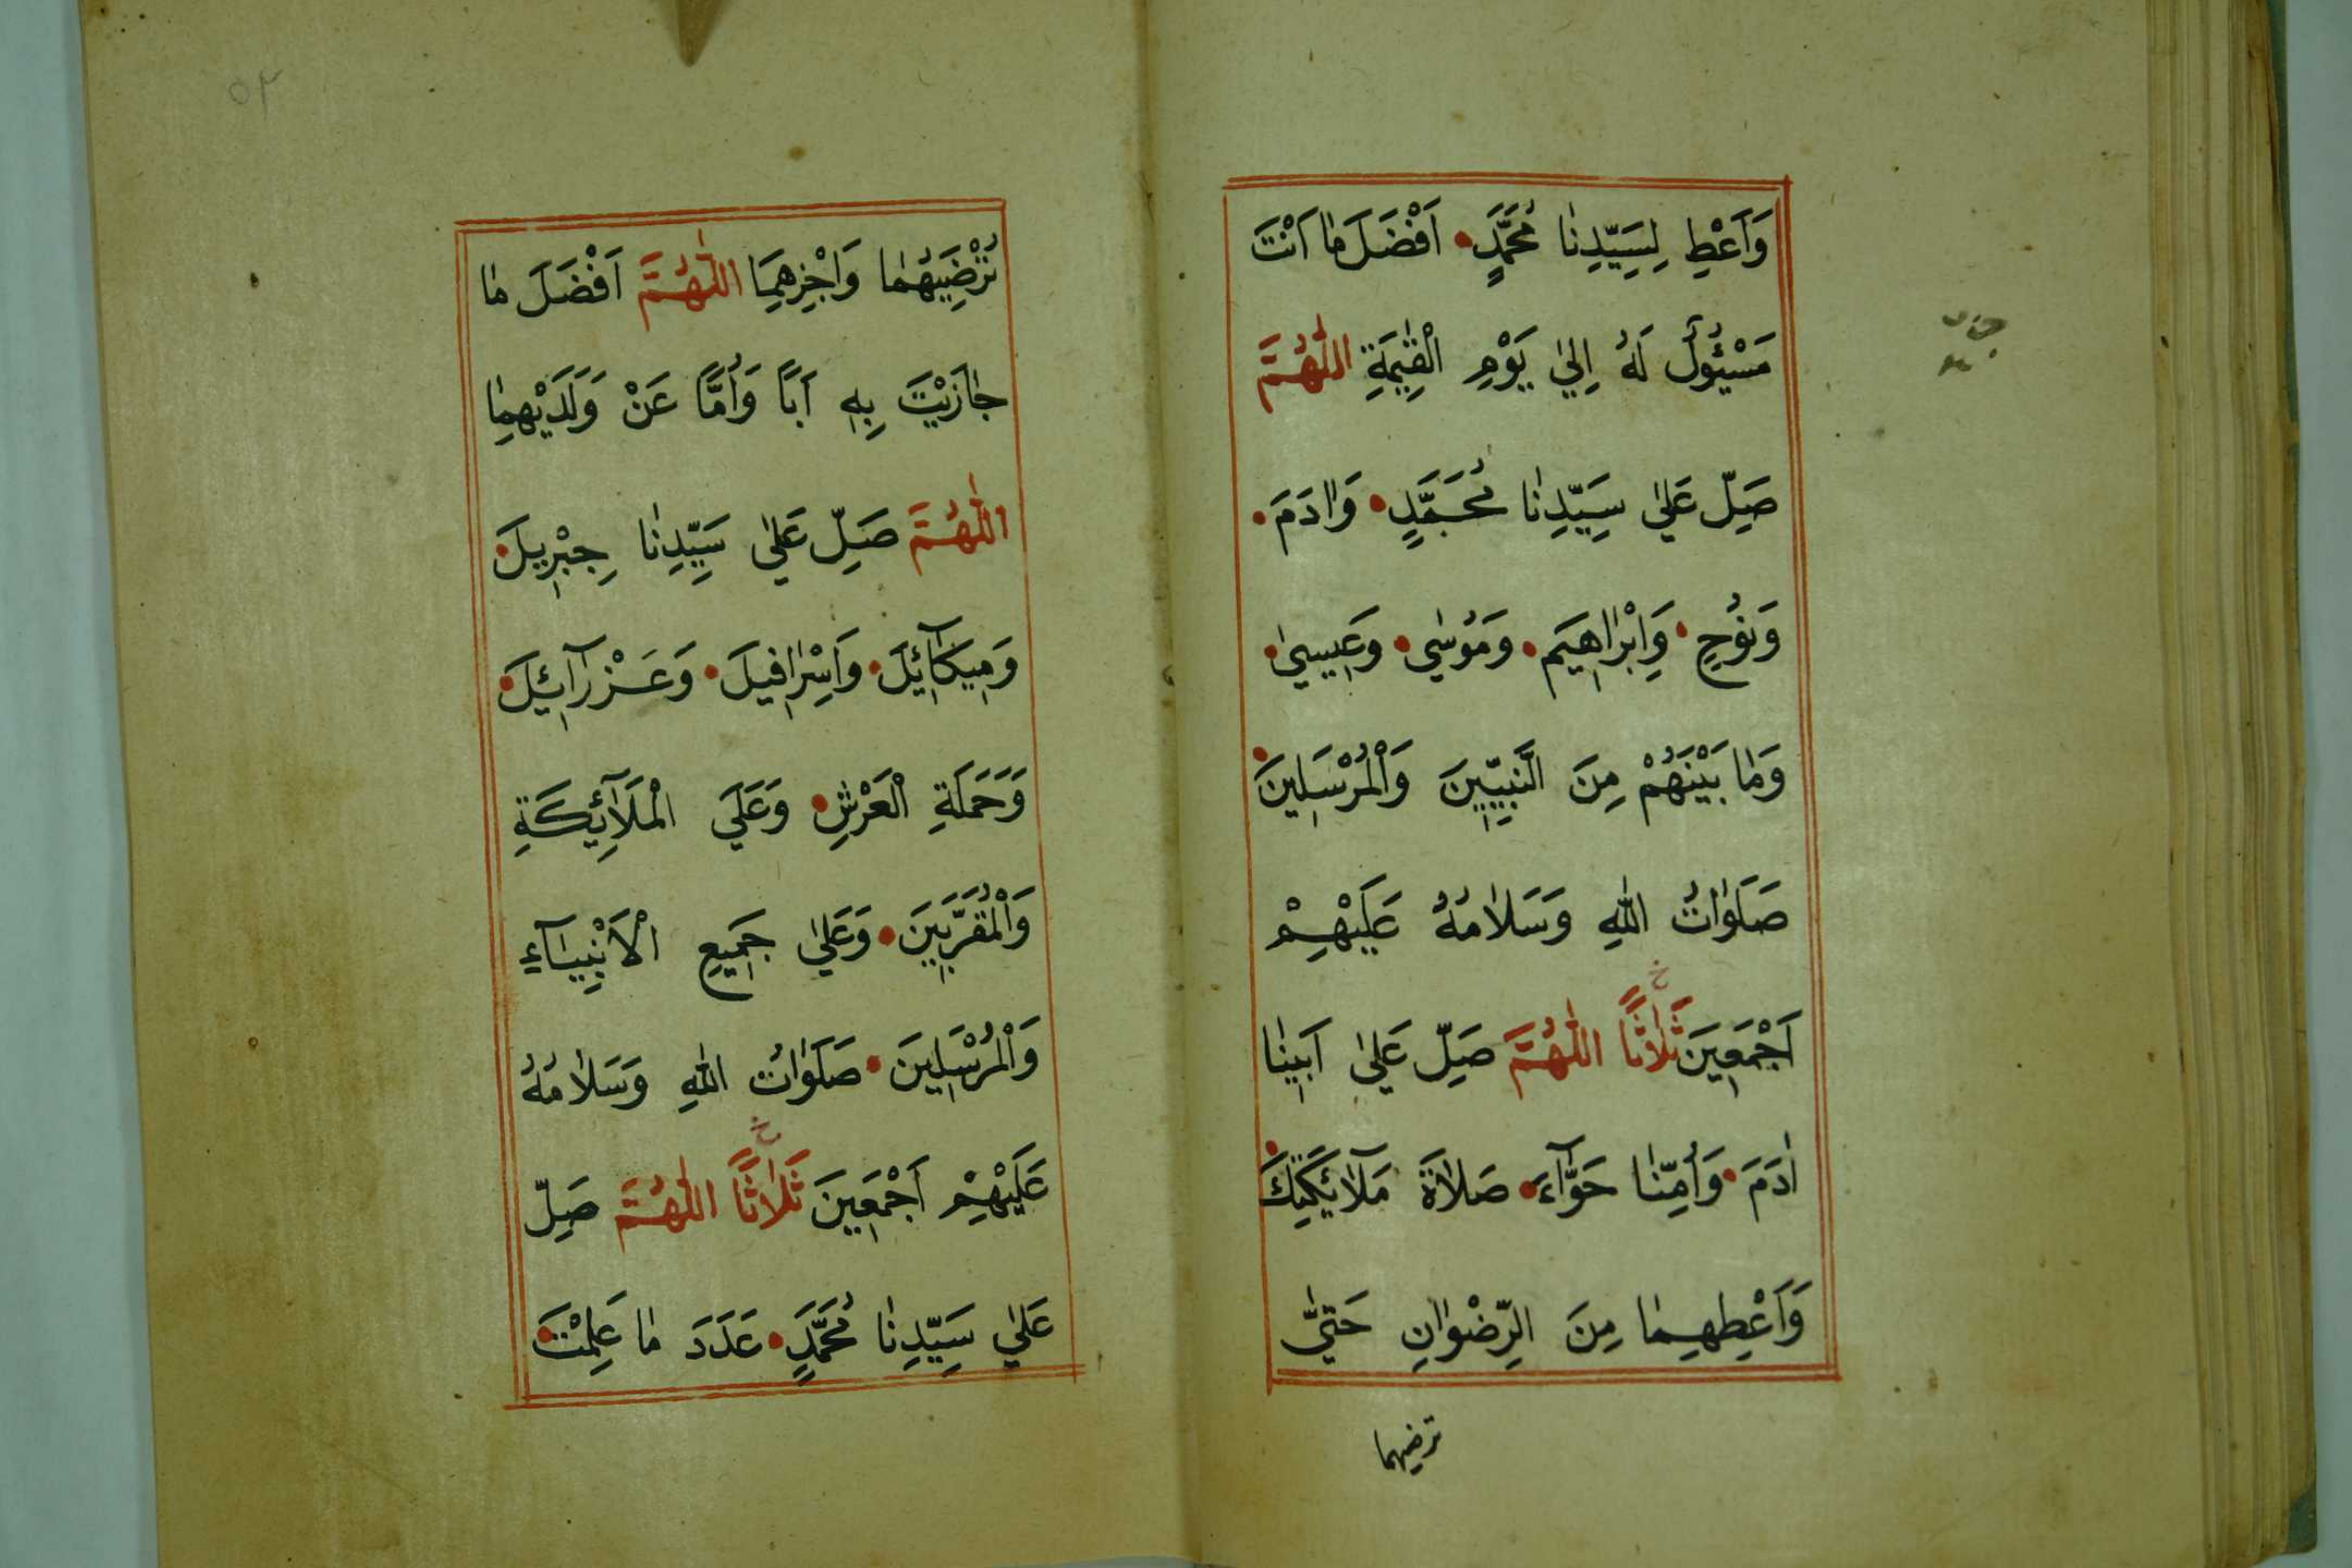 وَاَعْطِ لِسَيِّدِنَا مُحَمَّدٍ اَفْضَلَ مٰا اَنْتَ
مَسْئُولٌ لَهُ اِلٰي يَوْمِ الْقِيٰمَةِ اللّٰهُمَّ
صَلِّ عَلٰي سَيِّدِنٰا مُحَمَّدٍ وَاٰدَمَ
وَنُوحٍ وَاِبْرٰاهِيمَ وَمُوسٰي وَعِيسٰي
وَمٰا بَيْنَهُمْ مِنَ النَّبِيِّينَ وَالْمُرْسَلِينَ
صَلَوٰاتُ اللّٰهِ وَسَلٰامُهُ عَلَيْهِمْ
خ
اَجْمَعِينَ ثَلٰاثًا اللّٰهُمَّ صَلِّ عَلٰي اَبِينٰا
اٰدَمَ وَاُمِّنٰا حَوَّآءَ صَلٰاةَ مَلٰآئِكَتِكَ
وَاَعْطِهِمٰا مِنَ الرِّضْوٰانِ حَتّٰي
ترضيهما
٥٢
تُرْضِيَهُمٰا وَاجْزِهِمَا اللّٰهُمَّ اَفْضَلَ مٰا
جٰازَيْتَ بِهِ اَبًا وَاُمًّا عَنْ وَلَدَيْهِمٰا
اللّٰهُمَّ صَلِّ عَلٰي سَيِّدِنٰا جِبْرِيلَ
وَمِيكَآئِيلَ وَاِسْرٰافِيلَ وَعَزْرَآئِيلَ
وَحَمَلَةِ الْعَرْشِ وَعَلَي الْمَلَآئِكَةِ
وَالْمُقَرَّبِينَ وَعَلٰي جَمِيعِ الْاَنْبِيَآءِ
وَالْمُرْسَلِينَ صَلَوٰاتُ اللّٰهِ وَسَلٰامُهُ
خ
عَلَيْهِمْ اَجْمَعِينَ ثَلٰاثًا اللّٰهُمَّ صَلِّ
عَلٰي سَيِّدِنٰا مُحَمَّدٍ عَدَدَ مٰا عَلِمْتَ